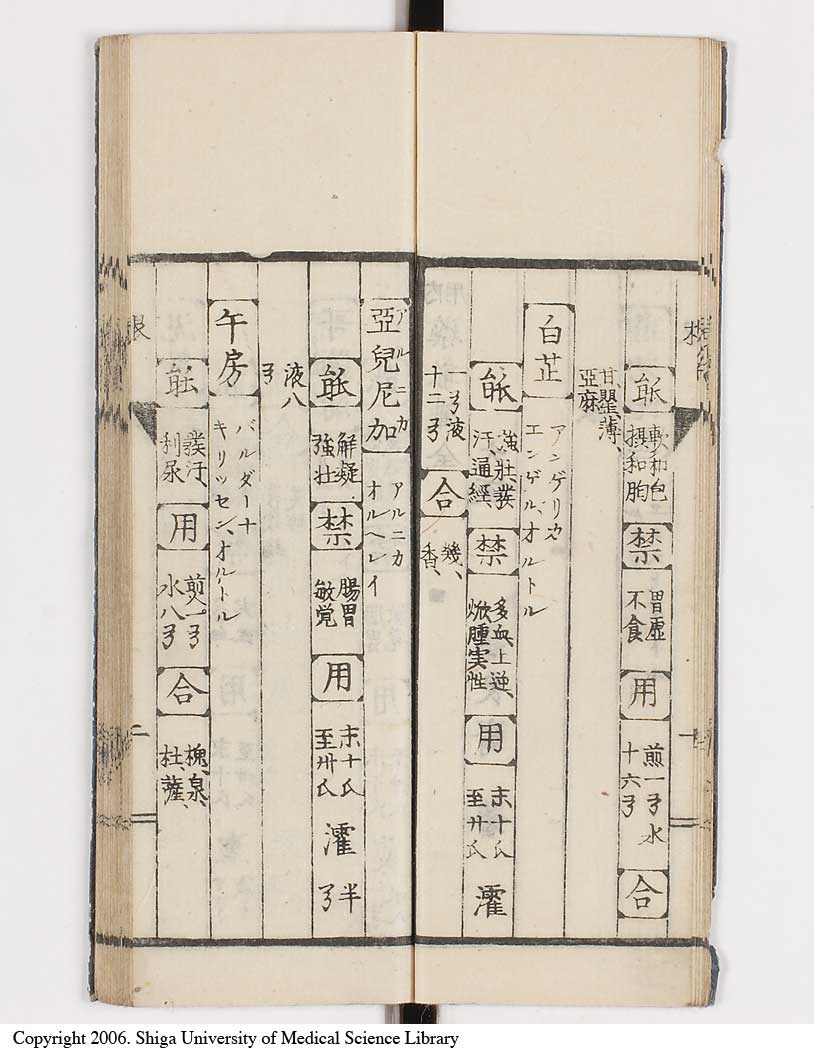 能 軟和包
摂和胸 禁 胃虚
不食 用 煎一ヲ水
十六ヲ 合
甘、瞿、薄、
亞麻
白芷 アンゲリカ
エンゲル、オルトル
能 強壮、発
汗、通経、 禁 多血上逆、
焮腫実性 用 末十氏
至廿氏 濯
一ヲ液
十二ヲ 合 幾、
香、
亞兒尼加 アルニカ
アルニカ
オルヘレイ
能 解凝
強壮 禁 腸胃
敏覚 用 末十氏
至卅氏 濯 半
ヲ
液八
ヲ
午房 バルダーナ
キリッセン、オルトル
能 発汗
利尿 用 煎一ヲ
水八ヲ 合 槐、泉、
杜、薩、
根
二
Copyright 2006. Shiga University of Medical Science Library